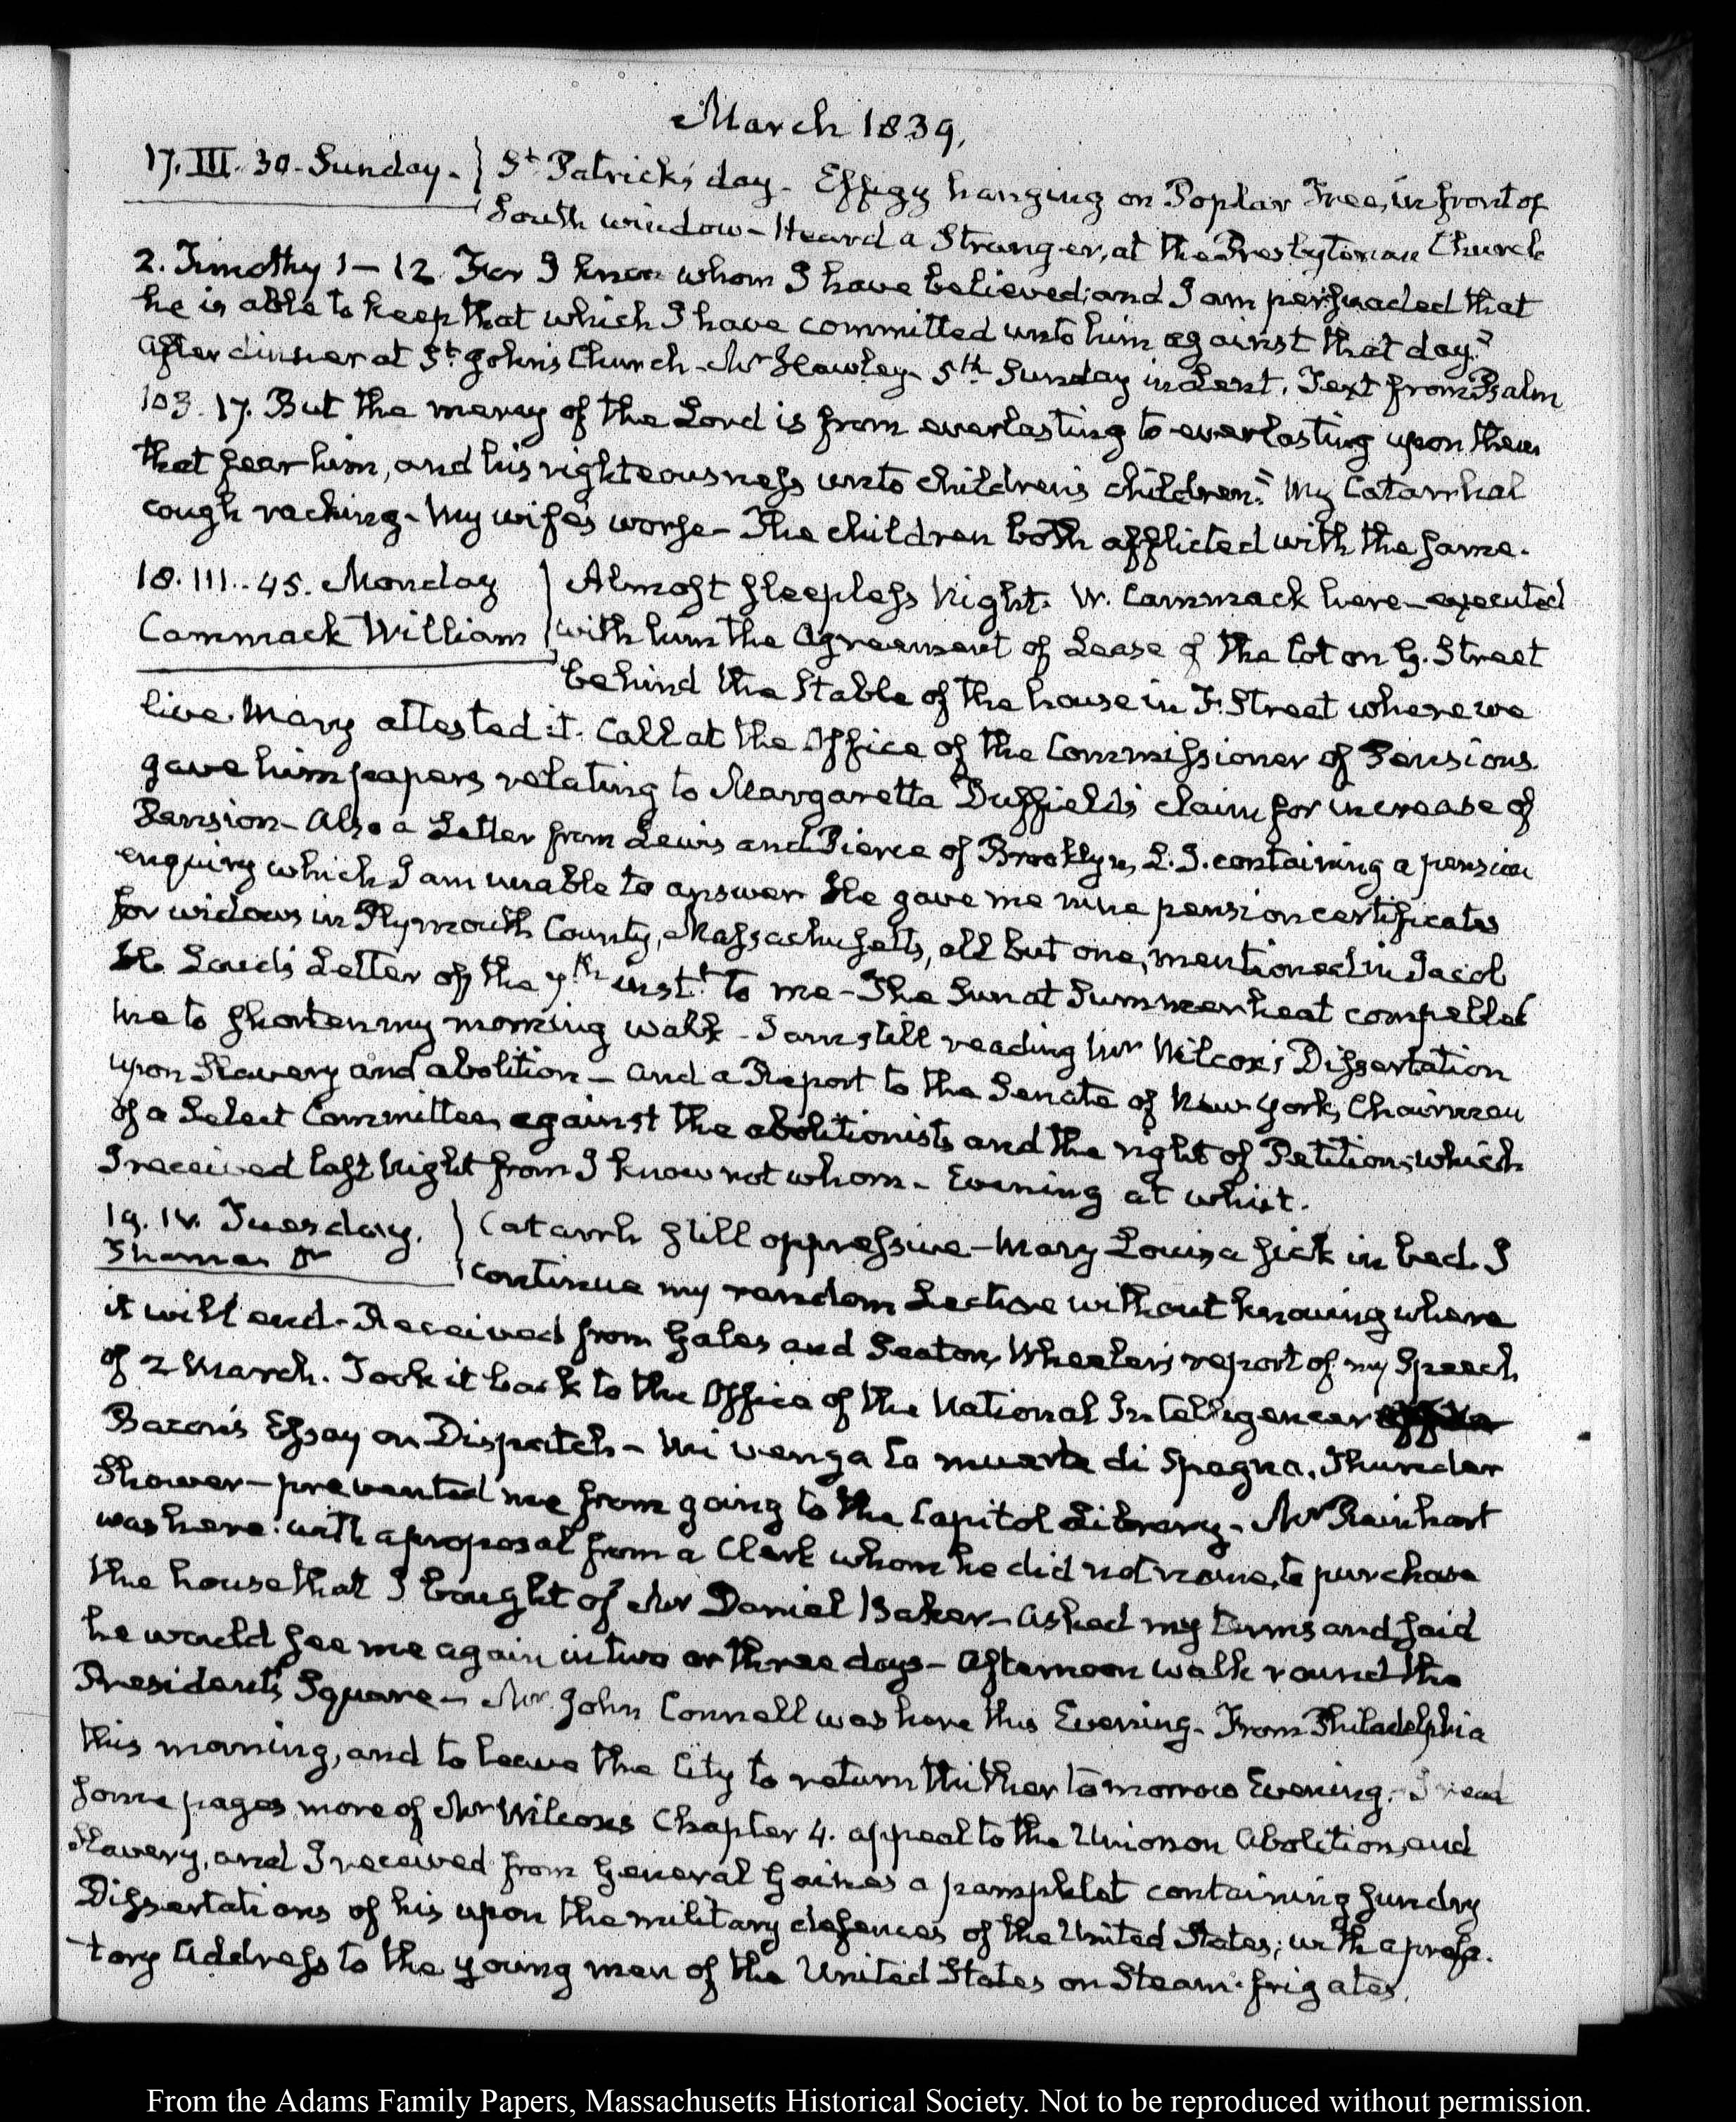 March 1839.
17. III. 30. Sunday. St. Patrick's day. Effigy hanging on Poplar Tree, in front of
South window - Heard a Stranger, at the Presbyterian Church
2. Timothy 1-12. For I know whom I have believed; and I am persuaded that
he is able to keep that which I have committed unto him against that day."
After dinner at St. John's Church - Mr Hawley. 5th Sunday in Lent. Text from Psalm
103. 17. But the mercy of the Lord is from everlasting to everlasting upon them
that fear him, and his righteousness unto children's children." My Catarrhal
cough racking - My wife's worse - The children both afflicted with the same.
18. III. 45. Monday Almost sleepless Night. W. Cammack here - executed
Cammack William with him the Agreement of Lease of the lot on G. Street
behind the Stable of the house in F. Street where we
live. Mary attested it. Call at the Office of the Commissioner of Pensions.
gave him papers relating to Margaretta Duffield's claim for increase of
Pension - Also a Letter from Lewis and Pierce of Brooklyn, L. I. containing a pension
enquiry which I am unable to answer He gave me nine pension certificates
for widows in Plymouth County, Massachusetts, all but one, mentioned in Jacob
H. Loud's Letter of the 7th inst. to me - The Sun at Summer heat compelled
me to shorten my morning walk - I am still reading Mr Wilcox's Dissertation
upon Slavery and abolition - and a Report to the Senate of New York, Chairman
of a Select Committee, against the abolitionists and the right of Petition; which
I received last Night from I know not whom - Evening at whist.
19. IV. Tuesday. Catarrh still oppressive - Mary Louisa sick in bed. I
Thomas Dr continue my random Lecture without knowing where
it will end - Received from Gales and Seaton, Wheeler's report of my Speech
of 2 March. Took it back to the Office of the National Intelligencer
Bacon's Essay on Dispatch - Mi venga la muerte di Spagna. Thunder
Shower - prevented me from going to the Capitol Library - Mr Rainhart
was here with a proposal from a Clerk whom he did not name, to purchase
the house that I bought of Mr Daniel Baker - asked my terms and said
he would see me again in two or three days - Afternoon walk round the
President's Square - Mr John Connell was here this Evening - From Philadelphia
this morning, and to leave the City to return thither tomorrow Evening. I read
some pages more of Mr Wilcox's Chapter 4. appeal to the Union on Abolition, and
Slavery, and I received from General Gaines a pamphlet containing sundry
Dissertations of his upon the military defences of the United States; with a prefa-
tory Address to the young men of the United States on Steam-frigates.
From the Adams Family Papers, Massachusetts Historical Society. Not to be reproduced without permission.